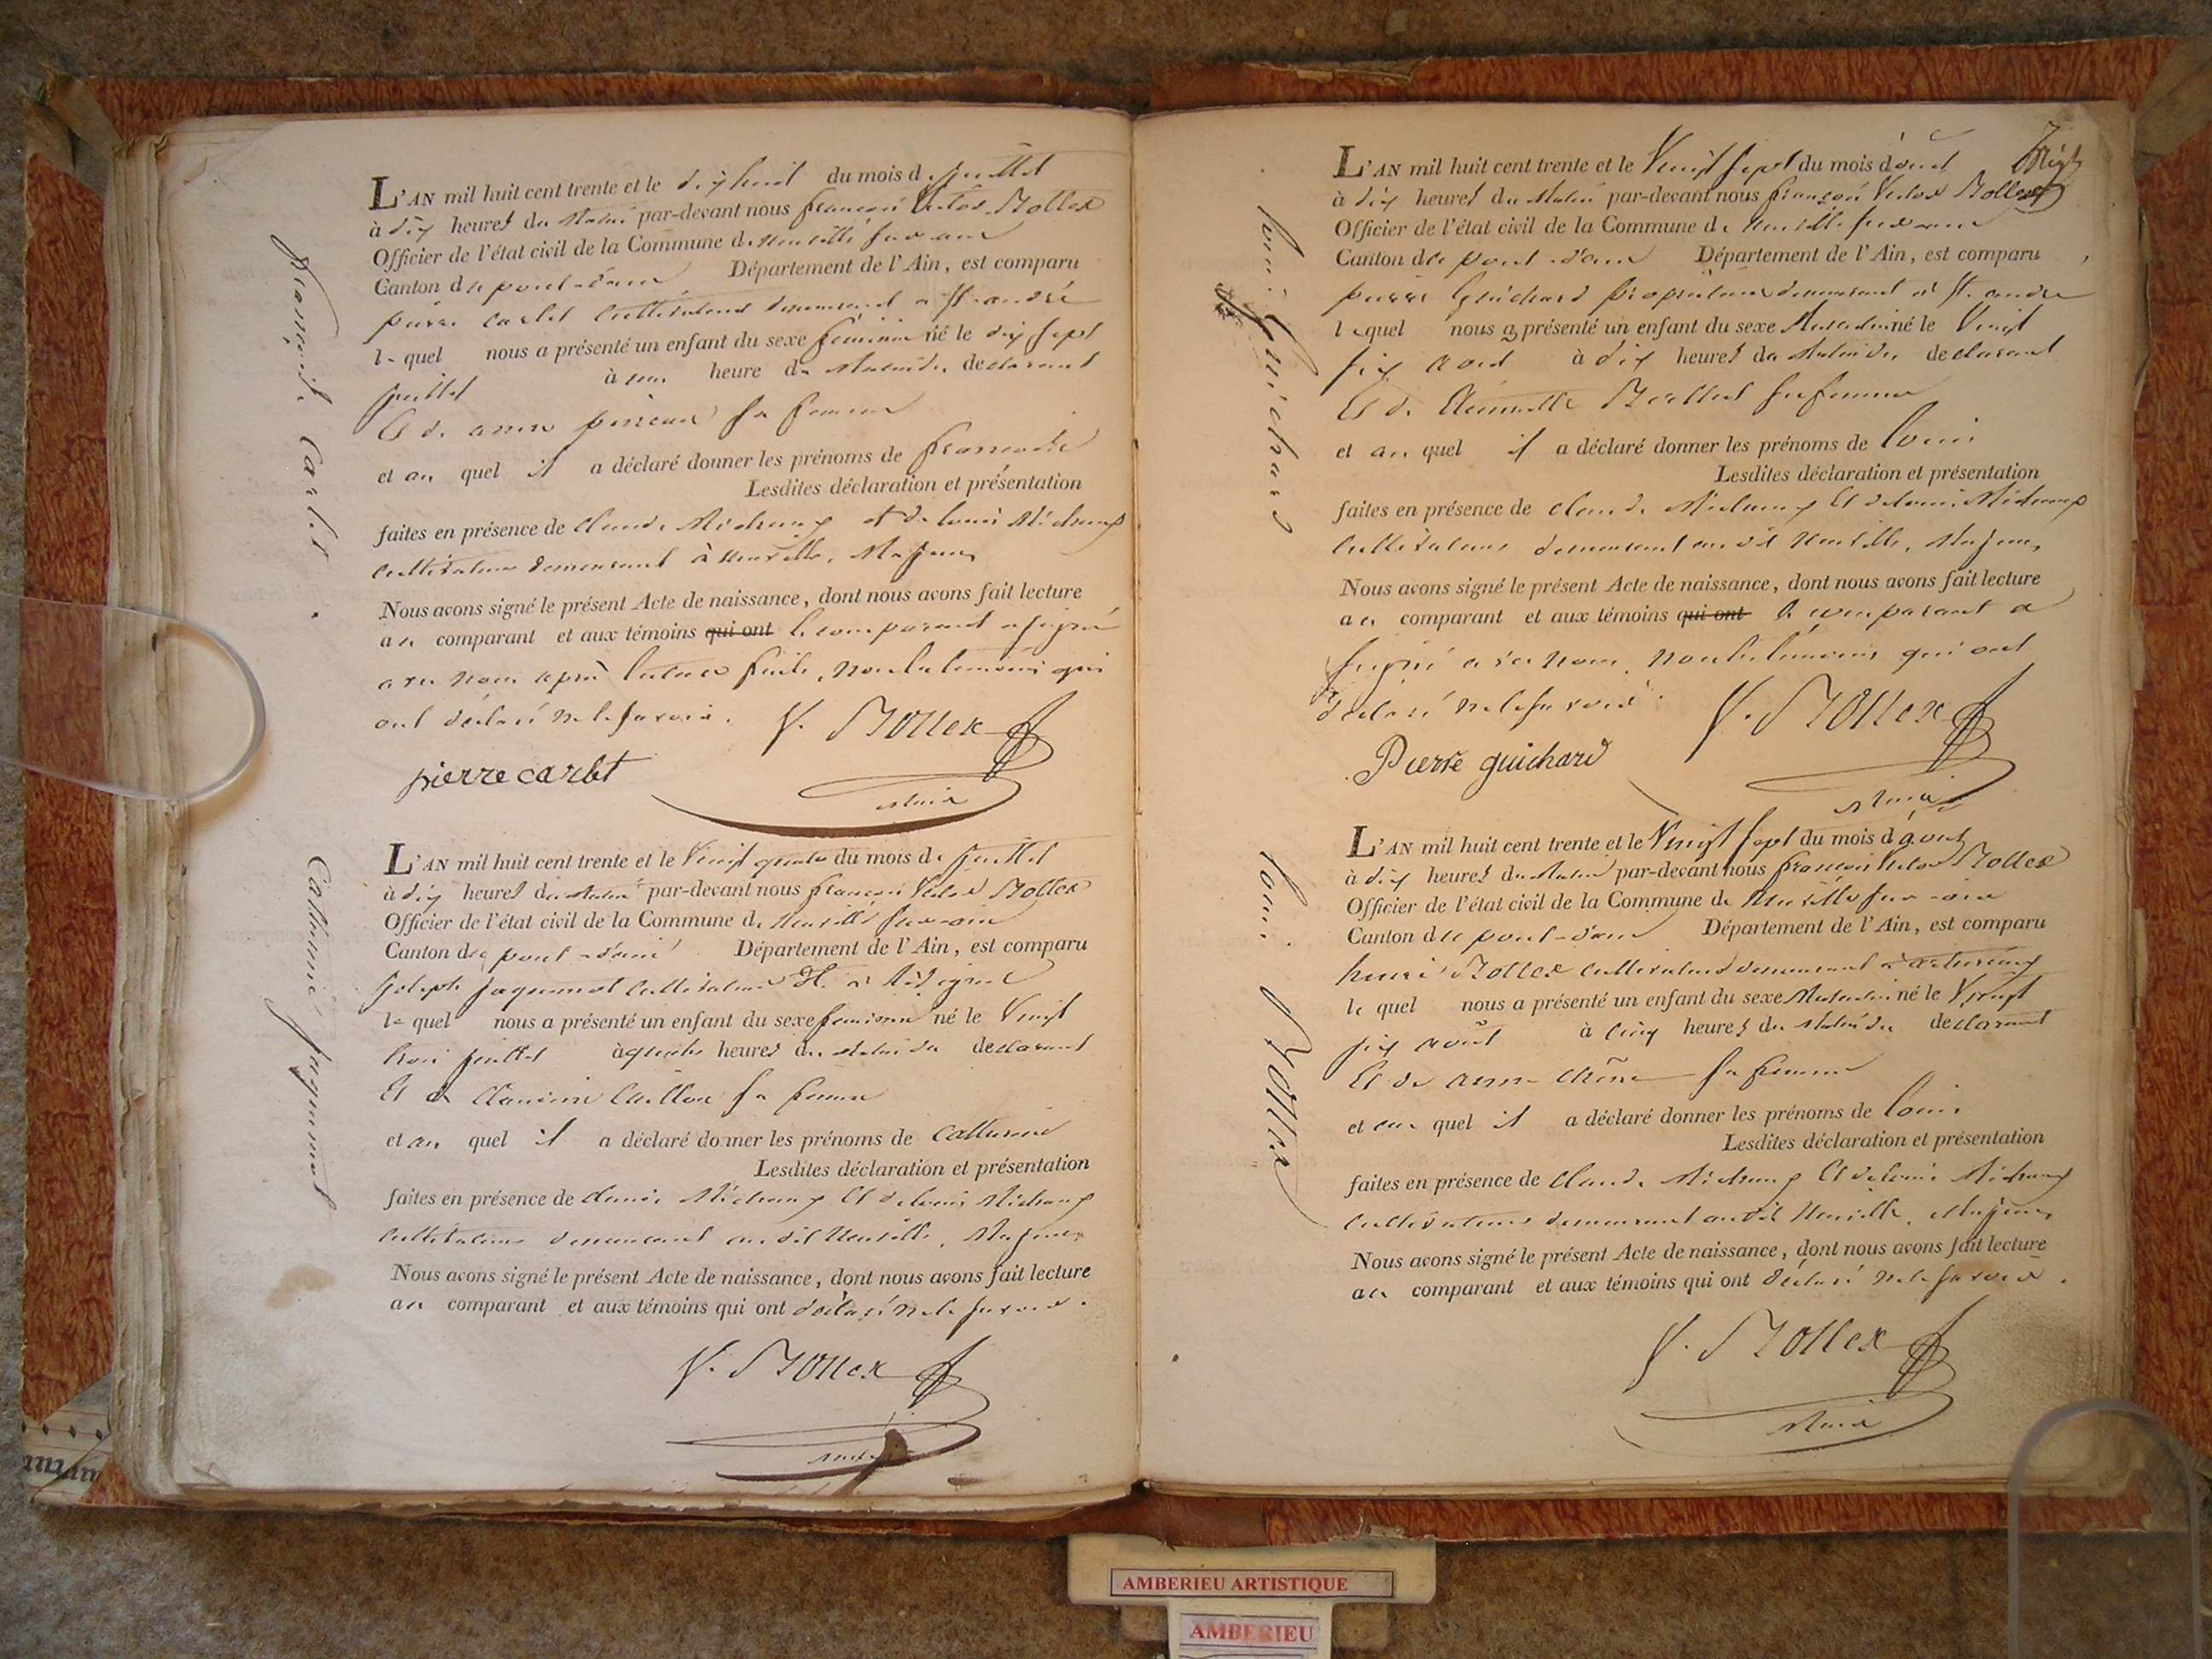 L'AN mil huit cent trente et le dix huit du mois de juillet
à dix heures du matin par-devant nous françois victor Bollex
Officier de l'état civil de la Commune de neuville sur ain
Canton de pont-d'ain Département de l'Ain, est comparu
pierre carlet cultivateur demeurant a st. andré
lequel nous a présenté un enfant du sexe féminin né le dix sept
juillet à une heure du matin de declarant
Et de anne sa femme
et au quel il a déclaré donner les prénoms de françoise
Lesdites déclaration et présentation
faites en présence de claude Michaux et de louis Michaux
cultivateurs demeurant à neuville, Majeurs
Nous avons signé le présent Acte de naissance, dont nous avons fait lecture
au comparant et aux témoins qui ont le comparant a signé
avec nous après lecture faite, non les témoins qui
ont déclaré ne le savoir.
V. Bollex
pierre carlet
Maire
françoise carlet.
L'AN mil huit cent trente et le Vingt quatre du mois de juillet
à dix heures du matin par-devant nous françois victor Bollex
Officier de l'état civil de la Commune de neuville sur ain
Canton de pont-d'ain Département de l'Ain, est comparu
joseph jaquemet cultivateur
lequel nous a présenté un enfant du sexe féminin né le Vingt
trois juillet à quatre heures du matin de declarant
Et de sa femme
et au quel il a déclaré donner les prénoms de Catherine
Lesdites déclaration et présentation
faites en présence de claude Michaux Et de louis Michaux
cultivateurs demeurant au dit Neuville, Majeurs
Nous avons signé le présent Acte de naissance, dont nous avons fait lecture
au comparant et aux témoins qui ont déclaré ne le savoir.
V. Bollex
Maire
Catherine jaquemet
L'AN mil huit cent trente et le Vingt sept du mois d'aout
à dix heures du matin par-devant nous françois Victor Bollex
Officier de l'état civil de la Commune de neuville sur ain
Canton de pont-d'ain Département de l'Ain, est comparu
pierre Guichard propriétaire demeurant à st. andré
lequel nous a présenté un enfant du sexe Masculin né le Vingt
six aout à dix heures du matin de declarant
Et de sa femme
et au quel il a déclaré donner les prénoms de louis
Lesdites déclaration et présentation
faites en présence de claude Michaux Et de louis Michaux
cultivateurs demeurant au dit neuville, Majeurs
Nous avons signé le présent Acte de naissance, dont nous avons fait lecture
au comparant et aux témoins qui ont le comparant a
signé avec nous, non les témoins qui ont
déclaré ne le savoir.
V. Bollex
Pierre guichard
Maire
louis guichard
L'AN mil huit cent trente et le Vingt sept du mois d'aout
à dix heures du matin par-devant nous françois victor Bollex
Officier de l'état civil de la Commune de Neuville sur ain
Canton de pont-d'ain Département de l'Ain, est comparu
henri Bollex cultivateur demeurant à
le quel nous a présenté un enfant du sexe Masculin né le Vingt
six août à cinq heures du matin de declarant
Et de anne chêne sa femme
et au quel il a déclaré donner les prénoms de louis
Lesdites déclaration et présentation
faites en présence de Claude Michaux Et de louis Michaux
cultivateurs demeurant au dit Neuville, Majeurs
Nous avons signé le présent Acte de naissance, dont nous avons fait lecture
au comparant et aux témoins qui ont déclaré ne le savoir.
V. Bollex
Maire
louis Bollex
AMBERIEU ARTISTIQUE
AMBERIEU